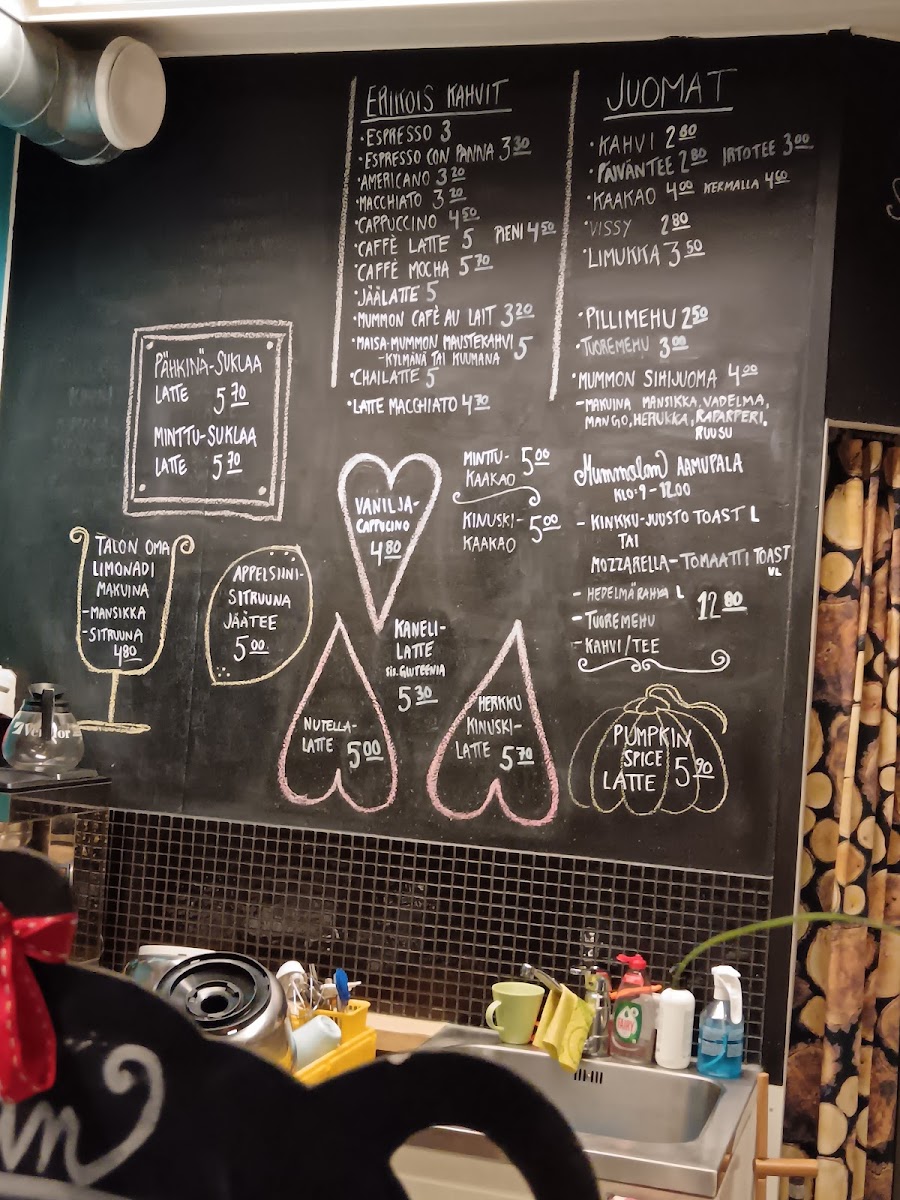 ERIKOIS KAHVIT
·ESPRESSO 3
·ESPRESSO CON PANNA 3 30
·AMERICANO 3 20
·MACCHIATO 3 20
·CAPPUCCINO 4 50
·CAFFÈ LATTE 5 PIENI 4 50
·CAFFÈ MOCHA 5 70
·JÄÄLATTE 5
·MUMMON CAFÈ AU LAIT 3 20
·MAISA-MUMMON MAUSTEKAHVI 5
-KYLMÄNÄ TAI KUUMANA
·CHAILATTE 5
·LATTE MACCHIATO 4 70
JUOMAT
·KAHVI 2 80
·PÄIVÄNTEE 2 80 IRTOTEE 3 00
·KAAKAO 4 00 KERMALLA 4 60
·VISSY 2 80
·LIMUKKA 3 50
·PILLIMEHU 2 50
·TUOREMEHU 3 00
·MUMMON SIHIJUOMA 4 00
-MAKUINA MANSIKKA, VADELMA,
MANGO, HERUKKA, RAPARPERI,
RUUSU
Mummolan AAMUPALA
KLO: 9-12.00
- KINKKU-JUUSTO TOAST L
TAI
MOZZARELLA-TOMAATTI TOAST
VL
- HEDELMÄRAHKA L
- TUOREMEHU
- KAHVI/TEE
12 80
PÄHKINÄ-SUKLAA
LATTE 5 70
MINTTU-SUKLAA
LATTE 5 70
TALON OMA
LIMONADI
MAKUINA
-MANSIKKA
-SITRUUNA
4 80
APPELSIINI-
SITRUUNA
JÄÄTEE
5 00
VANILJA-
CAPPUCINO
4 80
MINTTU-
KAAKAO 5 00
KINUSKI-
KAAKAO 5 00
KANELI-
LATTE
SIS. GLUTEENIA
5 30
NUTELLA-
LATTE 5 00
HERKKU
KINUSKI-
LATTE 5 70
PUMPKIN
SPICE
LATTE 5 90